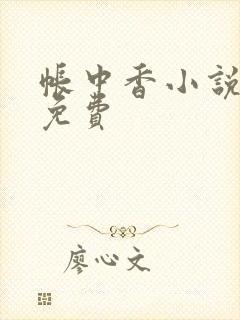 帳中香小說
免費
廖心文